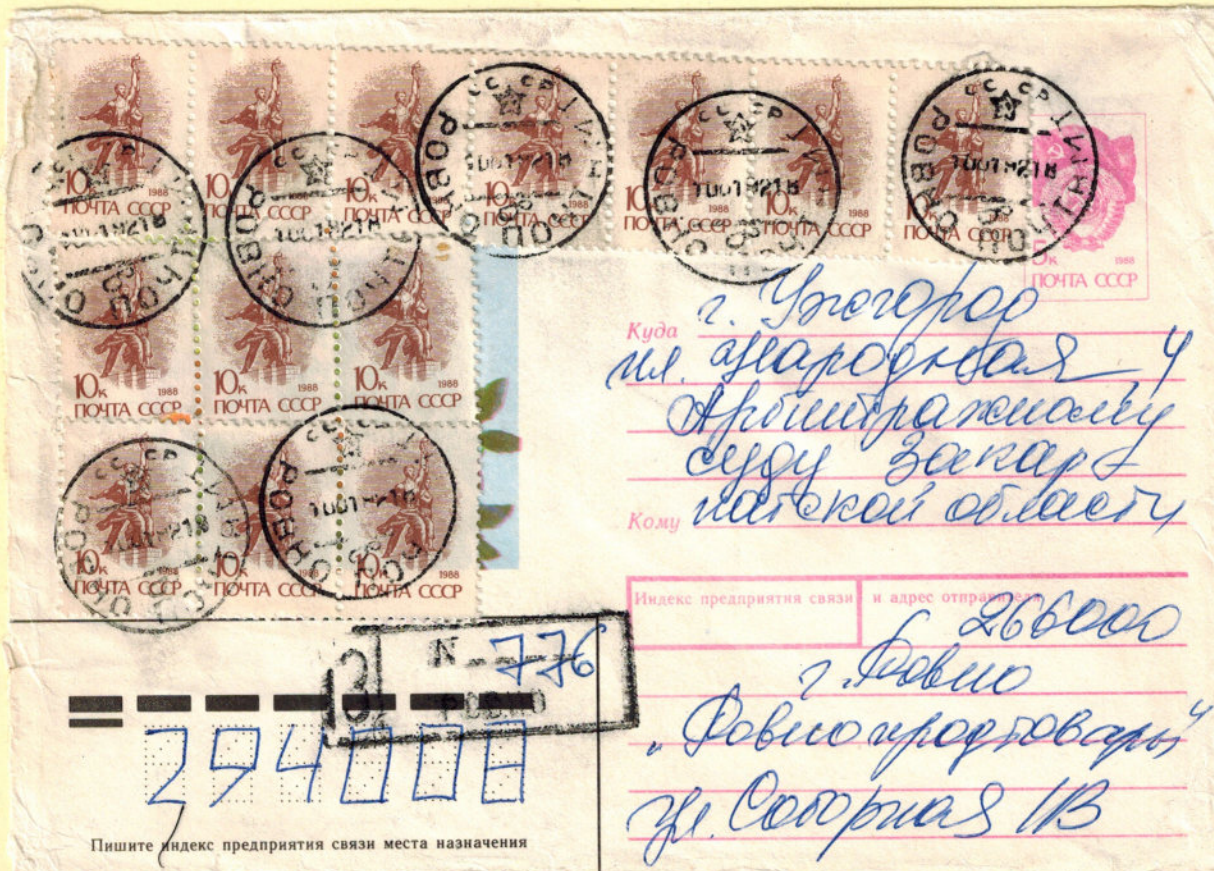 10к 1988 ПОЧТА СССР
10к 1988 ПОЧТА СССР
10к 1988 ПОЧТА СССР
10к 1988 ПОЧТА СССР
10к 1988 ПОЧТА СССР
10к 1988 ПОЧТА СССР
10к 1988 ПОЧТА СССР
5к 1988
ПОЧТА СССР
10к 1988 ПОЧТА СССР
10к 1988 ПОЧТА СССР
10к 1988 ПОЧТА СССР
10к 1988 ПОЧТА СССР
10к 1988 ПОЧТА СССР
10к 1988 ПОЧТА СССР
СССР
РОВНО
ПОЧТАМТ
Куда г. Ужгород
пл. Народная, 4
Арбитражному
суду Закар-
Кому патской области
Индекс предприятия связи и адрес отправителя
266000
г. Ровно
"Ровнопродтовары"
ул. Соборная
З
N 776
РОВНО
294008
Пишите индекс предприятия связи места назначения